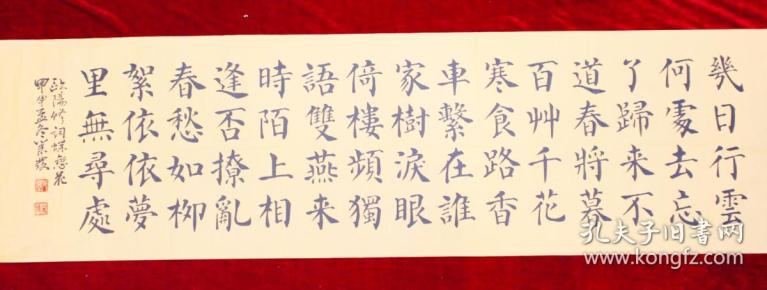 幾日行雲
何處去忘
了歸来不
道春將暮
百艸千花
寒食路香
車繫在誰
家樹淚眼
倚樓頻獨
語雙燕来
時陌上相
逢否撩亂
春愁如柳
絮依依夢
里無尋處
欧陽修词蝶恋花
甲申孟冬
孔夫子旧书网
www.kongfz.com